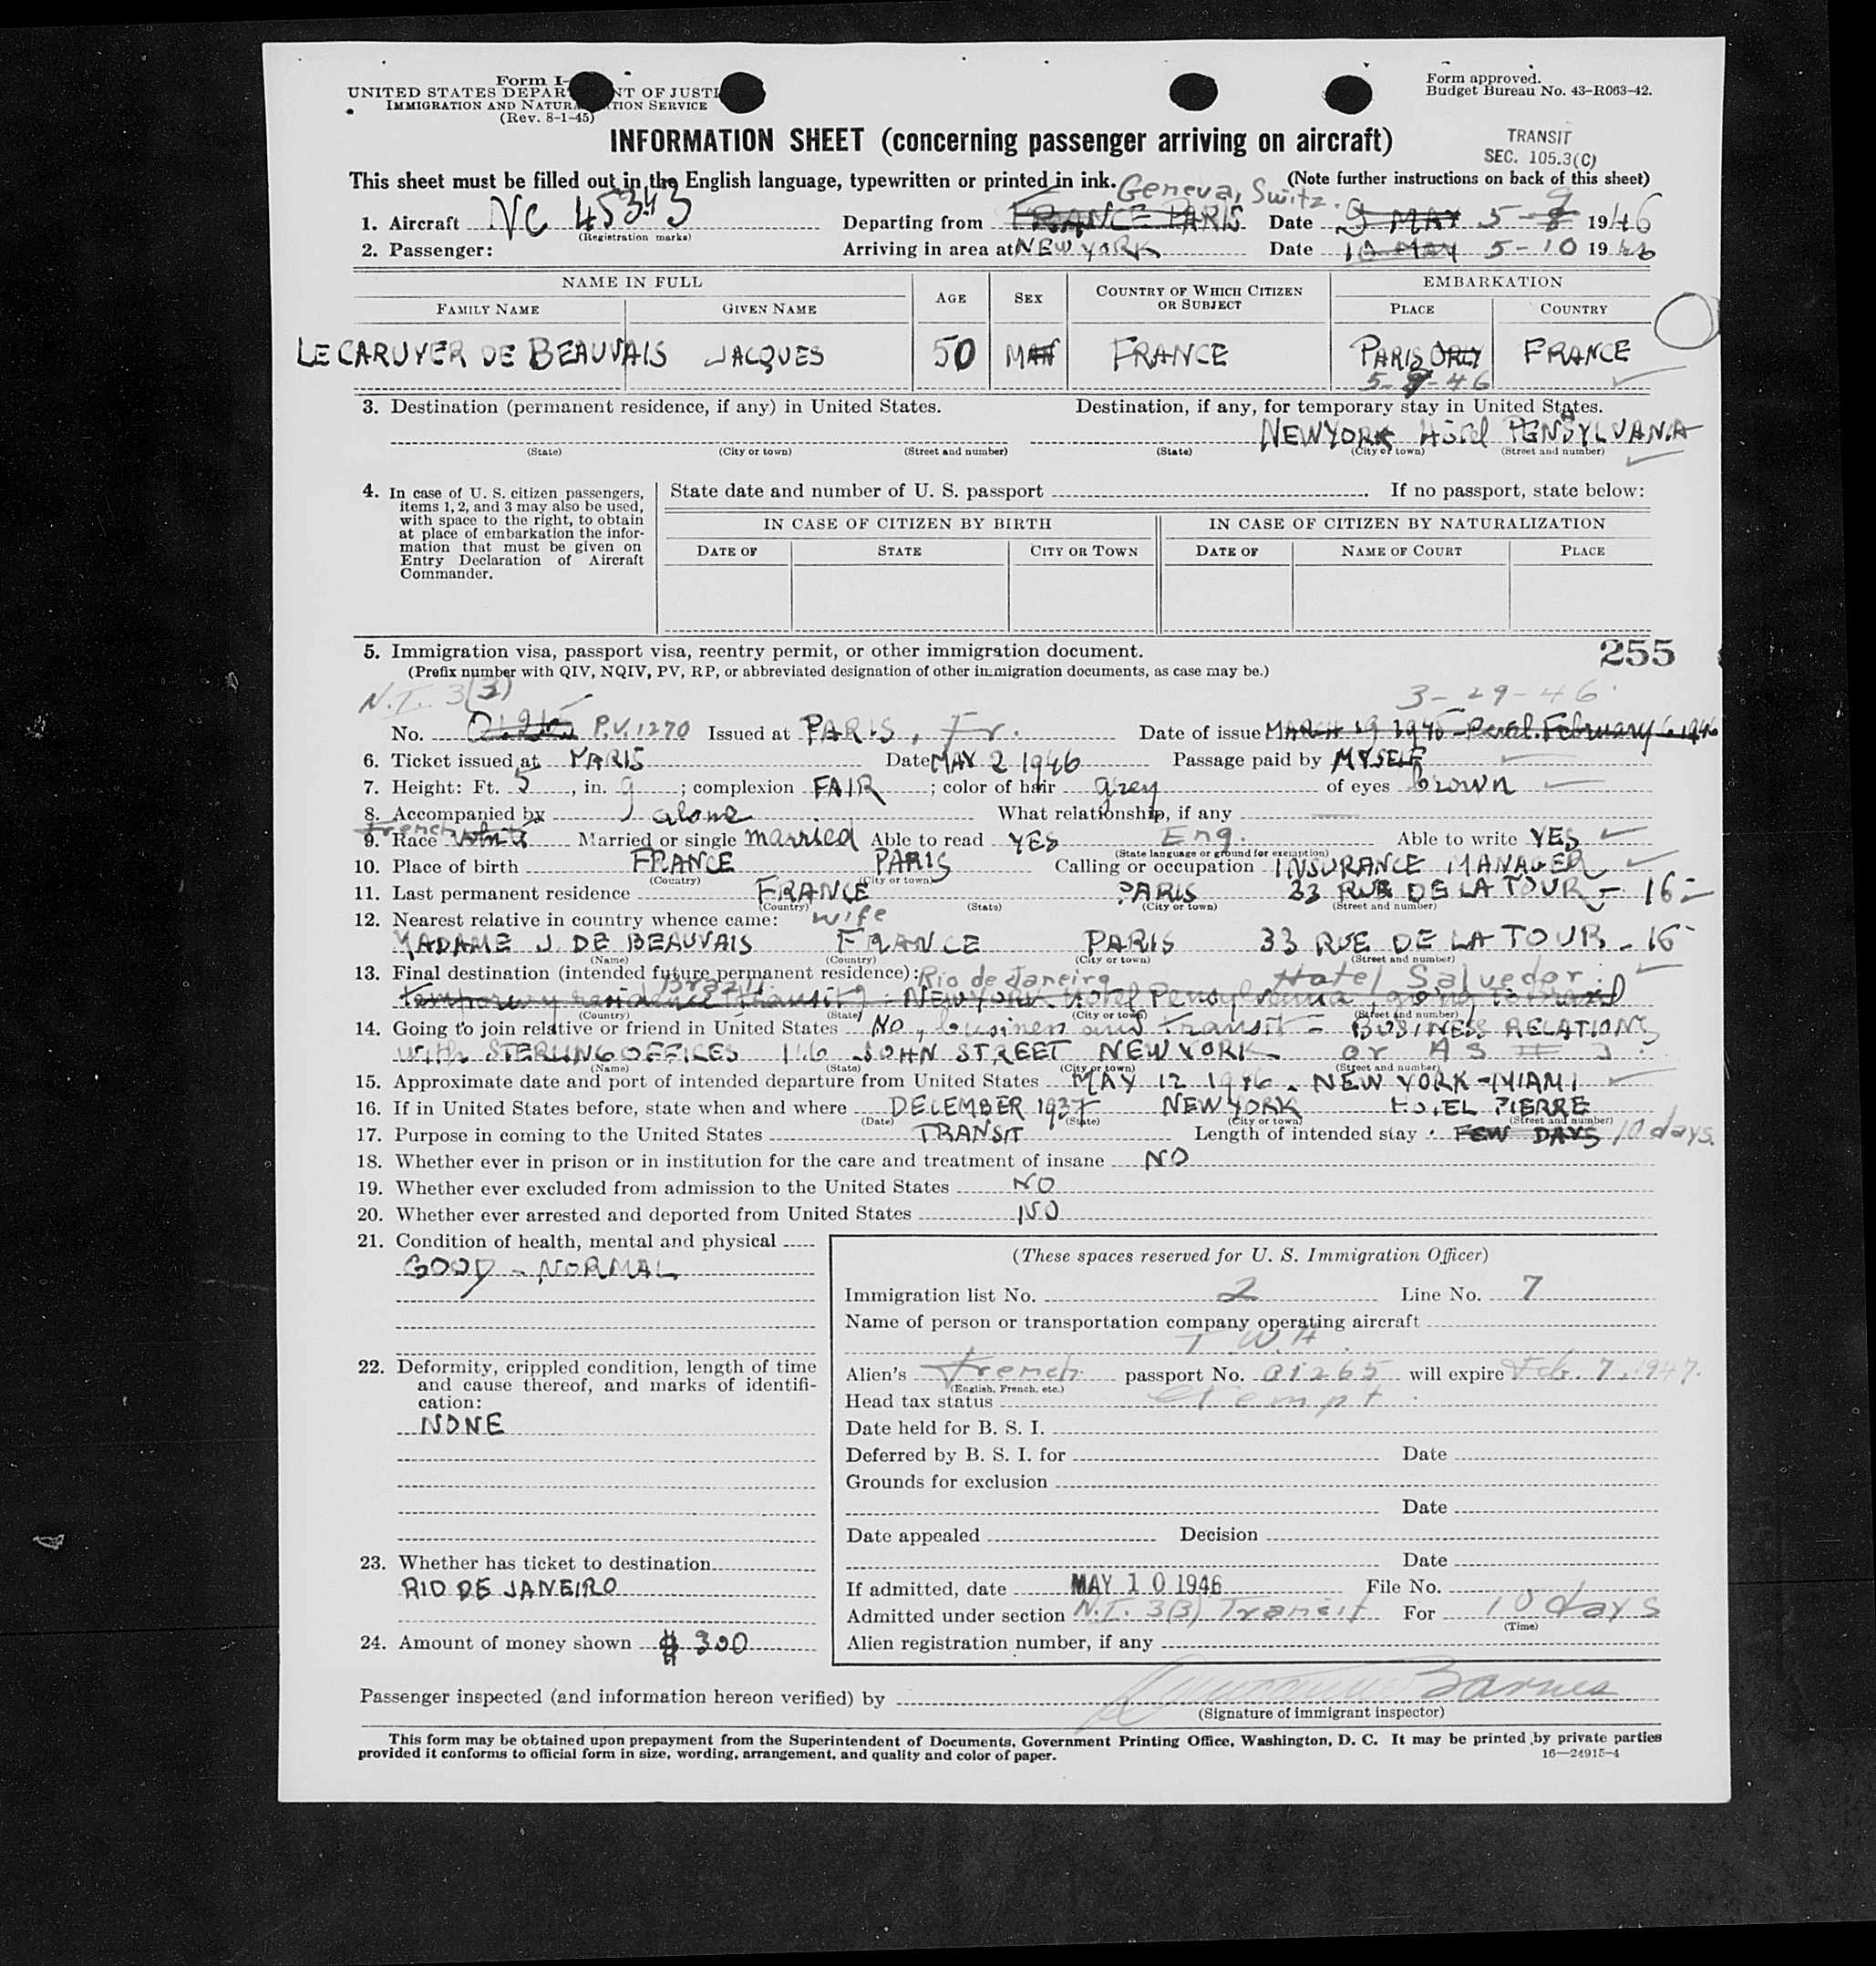 Form I-
UNITED STATES DEPAR NT OF JUSTI
IMMIGRATION AND NATURA TION SERVICE
(Rev. 8-1-45)
Form approved.
Budget Bureau No. 43-R063-42.
INFORMATION SHEET (concerning passenger arriving on aircraft)
TRANSIT
SEC. 105.3(C)
This sheet must be filled out in the English language, typewritten or printed in ink. (Note further instructions on back of this sheet)
Geneva, Switz.
1. Aircraft NC 45343 Departing from FRANCE PARIS Date 9 MAY 5-8 9 1946
(Registration marks)
2. Passenger: Arriving in area at NEW YORK Date 10 MAY 5-10 1946
NAME IN FULL AGE SEX COUNTRY OF WHICH CITIZEN OR SUBJECT EMBARKATION
FAMILY NAME GIVEN NAME PLACE COUNTRY
LE CARUYER DE BEAUVAIS JACQUES 50 MAN FRANCE PARIS ORLY FRANCE
5-9-46
3. Destination (permanent residence, if any) in United States. Destination, if any, for temporary stay in United States.
NEW YORK Hôtel PENSYLVANIA
(State) (City or town) (Street and number) (State) (City or town) (Street and number)
4. In case of U. S. citizen passengers, items 1, 2, and 3 may also be used, with space to the right, to obtain at place of embarkation the information that must be given on Entry Declaration of Aircraft Commander.
State date and number of U. S. passport . If no passport, state below:
IN CASE OF CITIZEN BY BIRTH IN CASE OF CITIZEN BY NATURALIZATION
DATE OF STATE CITY OR TOWN DATE OF NAME OF COURT PLACE
5. Immigration visa, passport visa, reentry permit, or other immigration document. 255
(Prefix number with QIV, NQIV, PV, RP, or abbreviated designation of other immigration documents, as case may be.)
N.I. 3(3) 3-29-46
No. P.V. 1270 Issued at PARIS, Fr. Date of issue MARCH 29 1946 February 6 1946
6. Ticket issued at PARIS Date MAY 2 1946 Passage paid by MYSELF
7. Height: Ft. 5, in. 9; complexion FAIR; color of hair grey of eyes brown
8. Accompanied by alone What relationship, if any
French
9. Race white Married or single married Able to read YES Eng. Able to write YES
(State language or ground for exemption)
10. Place of birth FRANCE PARIS Calling or occupation INSURANCE MANAGER
(Country) (City or town)
11. Last permanent residence FRANCE PARIS 33 RUE DE LA TOUR - 16-
(Country) (State) (City or town) (Street and number)
12. Nearest relative in country whence came: wife
MADAME J. DE BEAUVAIS FRANCE PARIS 33 RUE DE LA TOUR - 16-
(Name) (Country) (City or town) (Street and number)
13. Final destination (intended future permanent residence): Rio de Janeiro Hotel Salvedor
Brazil
temporary residence (transit) : NEW YORK Hotel Pensylvania, going to Brazil
(Country) (State) (City or town) (Street and number)
14. Going to join relative or friend in United States No, business and transit - BUSINESS RELATIONS
with STERLING OFFICES 116 JOHN STREET NEW YORK
(Name) (State) (City or town) (Street and number)
15. Approximate date and port of intended departure from United States MAY 12 1946. NEW YORK - MIAMI
16. If in United States before, state when and where DECEMBER 1937 NEW YORK HOTEL PIERRE
(Date) (State) (City or town) (Street and number)
17. Purpose in coming to the United States TRANSIT Length of intended stay FEW DAYS 10 days.
18. Whether ever in prison or in institution for the care and treatment of insane NO
19. Whether ever excluded from admission to the United States NO
20. Whether ever arrested and deported from United States NO
21. Condition of health, mental and physical
GOOD - NORMAL
22. Deformity, crippled condition, length of time and cause thereof, and marks of identification:
NONE
23. Whether has ticket to destination
RIO DE JANEIRO
24. Amount of money shown $ 300
(These spaces reserved for U. S. Immigration Officer)
Immigration list No. 2 Line No. 7
Name of person or transportation company operating aircraft
T.W.A.
Alien's French passport No. 01265 will expire Feb. 7, 1947.
(English, French, etc.)
Head tax status exempt
Date held for B. S. I.
Deferred by B. S. I. for Date
Grounds for exclusion
Date
Date appealed Decision
Date
If admitted, date MAY 10 1946 File No.
Admitted under section N.I. 3(3) Transit For 10 days
(Time)
Alien registration number, if any
Passenger inspected (and information hereon verified) by Barnes
(Signature of immigrant inspector)
This form may be obtained upon prepayment from the Superintendent of Documents, Government Printing Office, Washington, D. C. It may be printed by private parties
provided it conforms to official form in size, wording, arrangement, and quality and color of paper. 16—24915-4